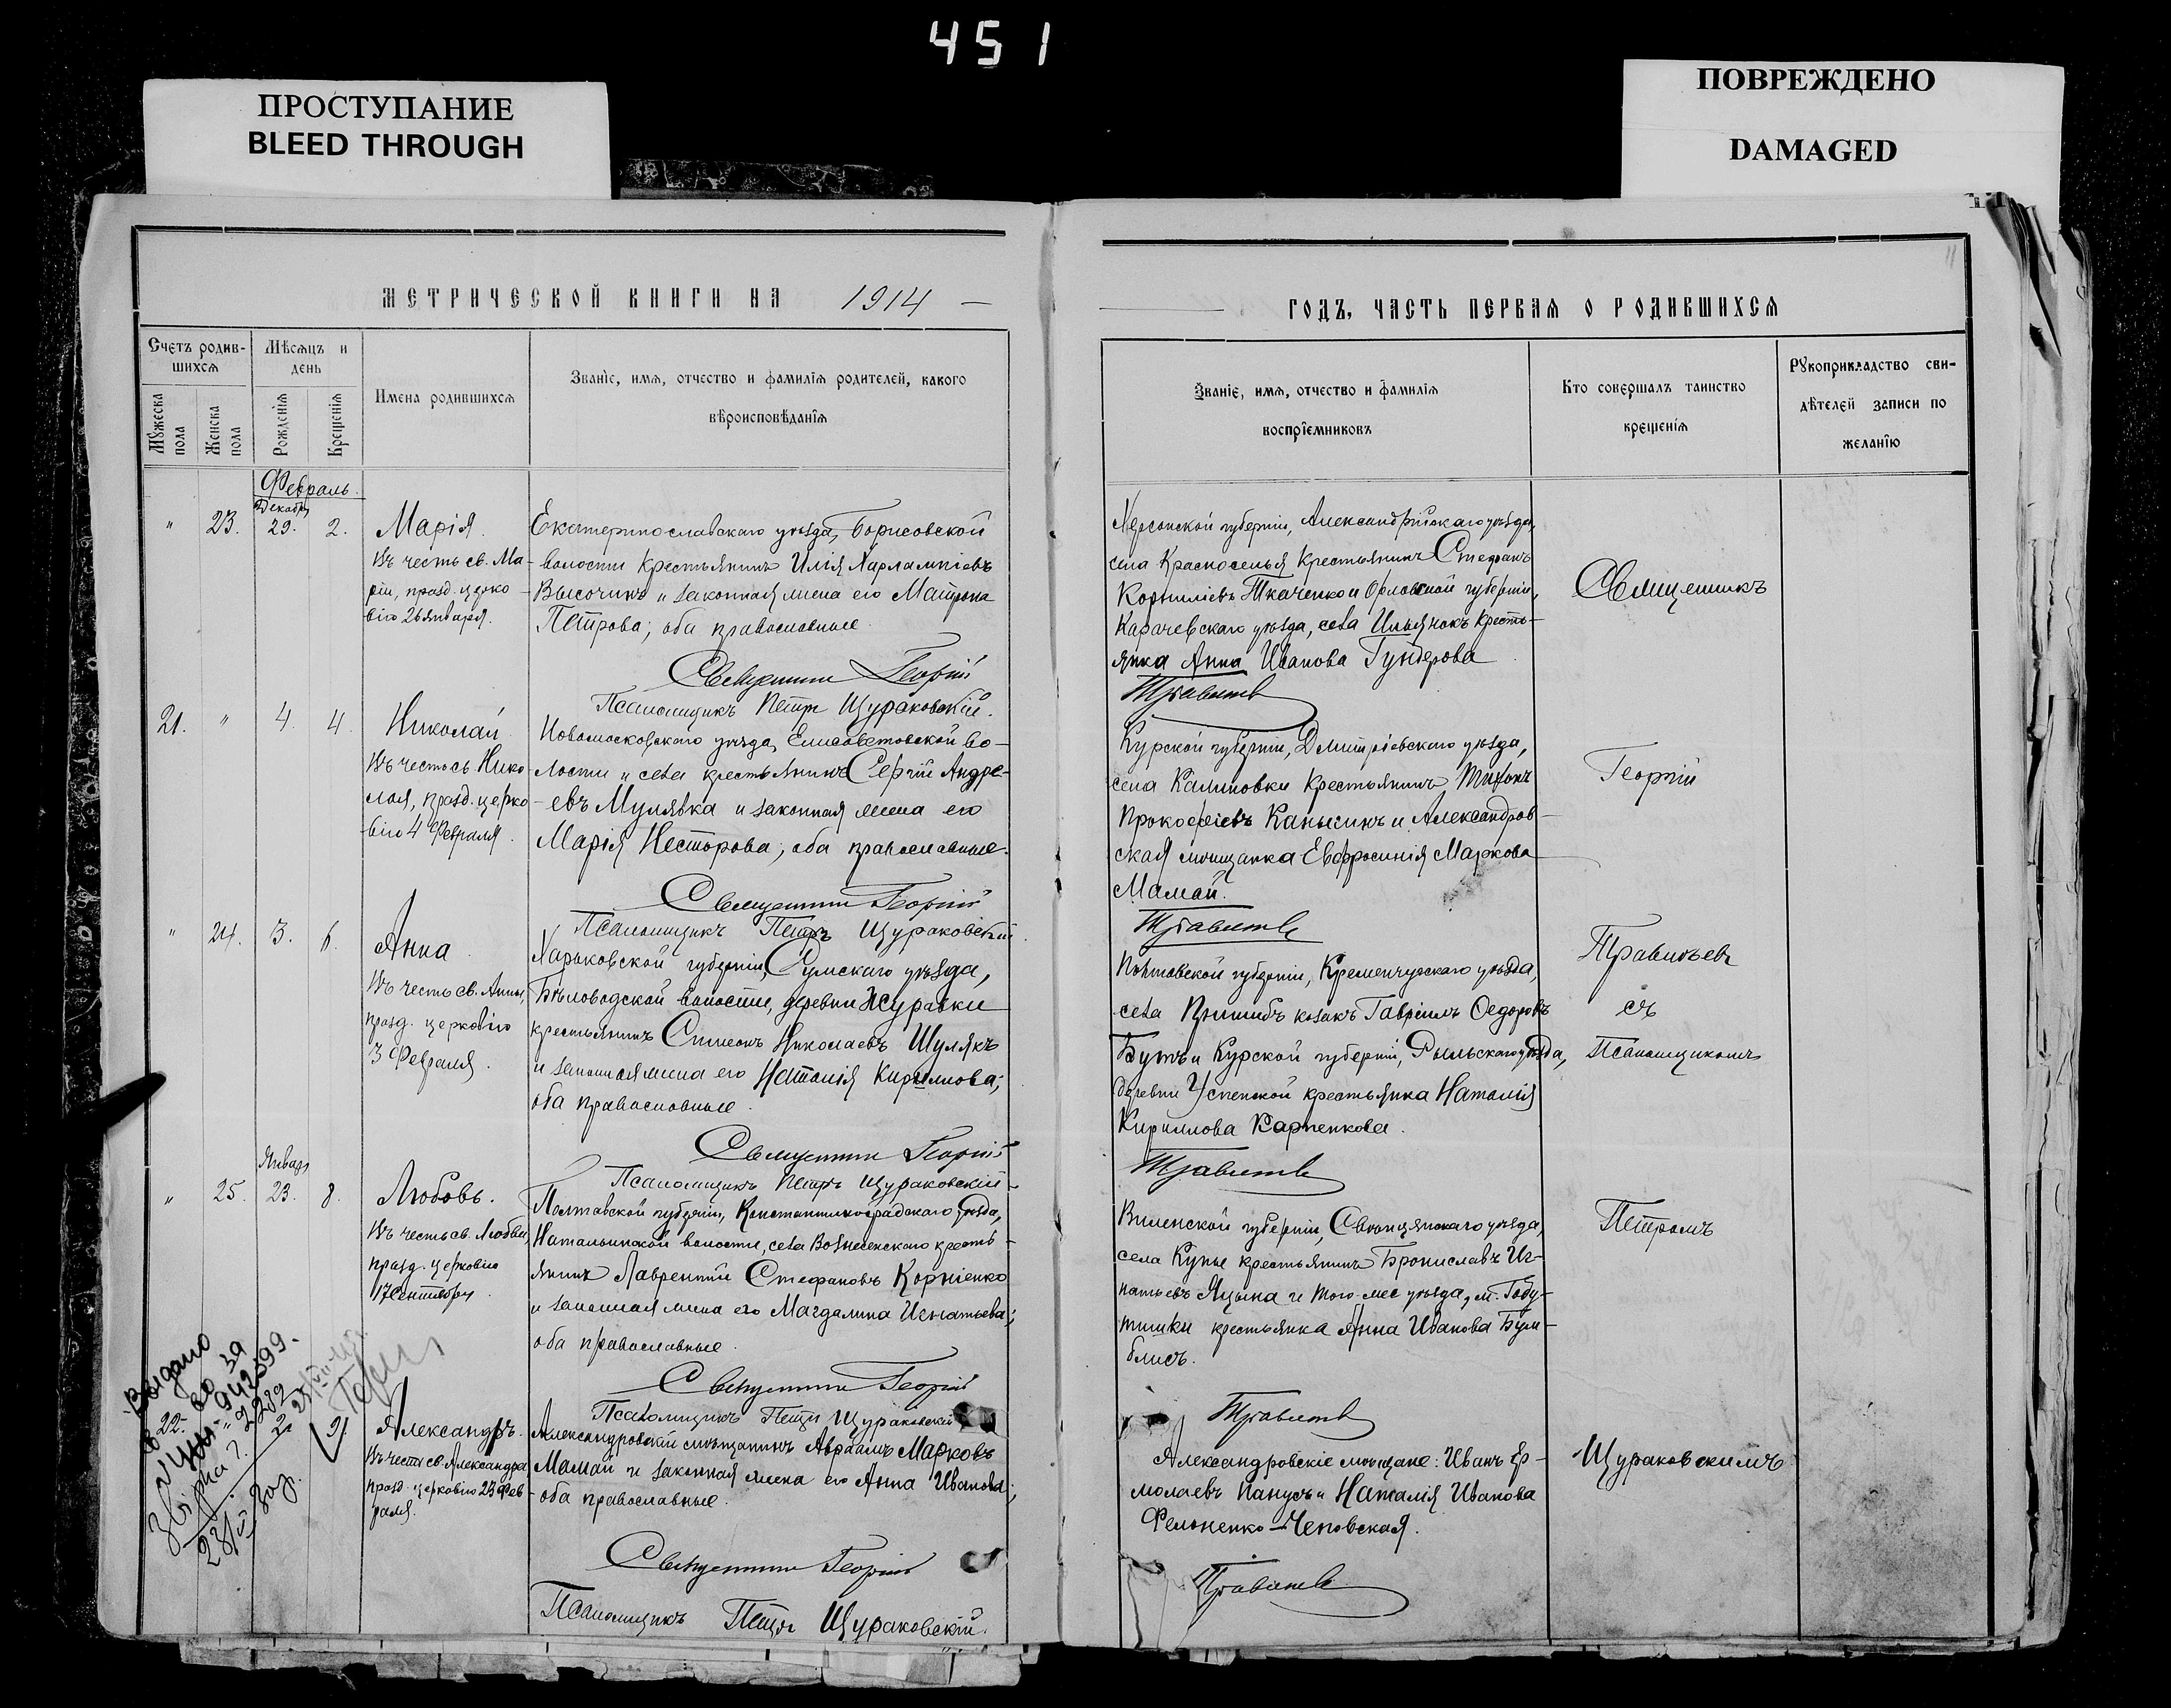 451
ПРОСТУПАНИЕ
BLEED THROUGH
ПОВРЕЖДЕНО
DAMAGED
МЕТРИЧЕСКОЙ КНИГИ НА 1914
Счетъ родив-
шихся
Мѣсяцъ и
день
Имена родившихся
Званіе, имя, отчество и фамилія родителей, какого
вѣроисповѣданія
Мужеска
пола
Женска
пола
Рожденія
Крещенія
Февраль
Декабр
" 23. 29. 2.
Марія.
Въ честь св. Ма-
ріи, празд. церко-
вію 26 января.
Екатеринославскаго уѣзда, Борисовской
волости крестьянинъ Илія Харлампіевъ
Высочинъ и законная жена его Матрона
Петрова; оба православные.
Священникъ Георгій
Псаломщикъ Петръ Щураковскій.
21. " 4. 4.
Николай
Въ честь св. Нико-
лая, празд. церко-
вію 4 Февраля.
Новомосковскаго уѣзда, Елисаветовской во-
лости и села крестьянинъ Сергій Андре-
евъ Мулявка и законная жена его
Марія Несторова; оба православные.
Священникъ Георгій
Псаломщикъ Петръ Щураковскій
" 24. 3. 6.
Анна
Въ честь св. Анны,
празд. церковію
3 Февраля.
Харьковской губерніи, Сумскаго уѣзда,
Бѣловодской волости, деревни Журавки
крестьянинъ Симеонъ Николаевъ Шулякъ
и законная жена его Наталія Кириллова;
оба православные.
Священникъ Георгій
Псаломщикъ Петръ Щураковскій
Январ
" 25. 23. 8.
Любовь.
Въ честь св. Любви,
празд. церковію
17 Сентября.
Полтавской губерніи, Константиноградскаго уѣзда,
Натальинской волости, села Вознесенскаго кресть-
янинъ Лаврентій Стефановъ Корніенко
и законная жена его Магдалина Игнатьева;
оба православные.
Священникъ Георгій
Псаломщикъ Петръ Щураковскій
Выдано
22. " 2. 9.
Александръ.
Въ честь св. Александра
празд. церковію 23 Фев-
раля.
Александровскій мѣщанинъ Авраамъ Марковъ
Мамай и законная жена его Анна Иванова;
оба православные.
Священникъ Георгій
Псаломщикъ Петръ Щураковскій.
11
ГОДЪ, ЧАСТЬ ПЕРВАЯ О РОДИВШИХСЯ
Званіе, имя, отчество и фамилія
воспріемниковъ
Кто совершалъ таинство
крещенія
Рукоприкладство сви-
дѣтелей записи по
желанію
Херсонской губерніи, Александрійскаго уѣзда,
села Красноселья крестьянинъ Стефанъ
Корниліевъ Ткаченко и Орловской губерніи,
Карачевскаго уѣзда, села Ильянокъ кресть-
янка Анна Иванова Гундерова
Травинъевъ
Курской губерніи, Дмитріевскаго уѣзда,
села Калиновки крестьянинъ Тихонъ
Прокофіевъ Канысинъ и Александров-
ская мѣщанка Евфросинія Маркова
Мамай.
Полтавской губерніи, Кременчугскаго уѣзда,
села Пришибъ козакъ Гавріилъ Ѳедоровъ
Бутъ и Курской губерніи, Рыльскаго уѣзда,
деревни Успенской крестьянка Наталія
Кириллова Карпенкова.
Виленской губерніи, Свенцянскаго уѣзда,
села Купы крестьянинъ Брониславъ Иг-
натьевъ Яцына и того-же уѣзда, м. Году-
тишки крестьянка Анна Иванова Бум-
блисъ.
Александровскіе мѣщане: Иванъ Ер-
молаевъ Панусъ и Наталія Иванова
Фельненко-Чеповская.
Священникъ
Георгій
съ
Псаломщикомъ
Петромъ
Щураковскимъ